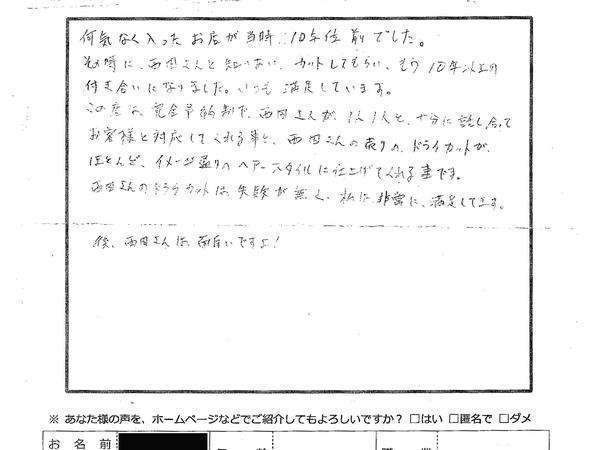 何気なく入ったお店が当時、10年位前でした。
その時に、西田さんと知りあい、カットしてもらい、もう10年以上の
付き合いになりました。いつも満足しています。
この店は、完全予約制で、西田さんが、1人1人と、十分に話し合って
お客様と対応してくれる事と、西田さんの売りの、ドライカットが、
ほとんど、イメージ通りのヘアースタイルに仕上げてくれる事です。
西田さんのドライカットは失敗が無く、私は非常に、満足してます。
後、西田さんは面白いですよ!
※ あなた様の声を、ホームページなどでご紹介してもよろしいですか？ □はい □匿名で □ダメ
お 名 前